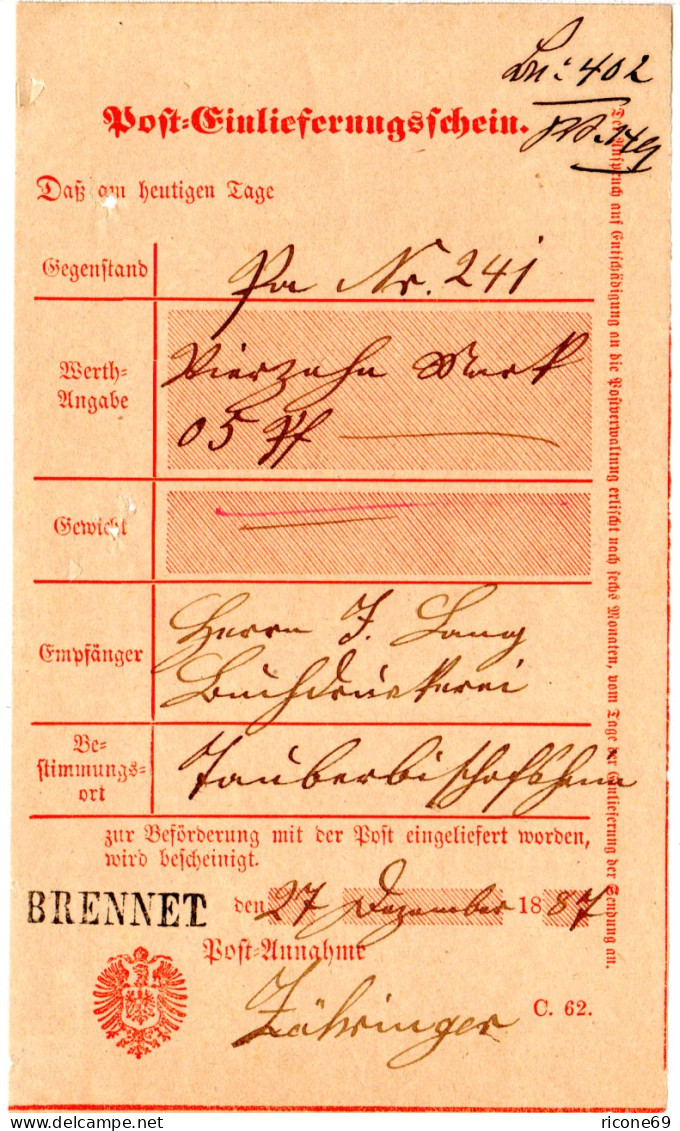 No: 402
Post-Einlieferungsschein.
Daß am heutigen Tage
Gegenstand
Pa Nr. 241
Werth-
Angabe
Vierzehn Mark
05 Pf
Gewicht
Empfänger
Herrn J. Lang
Buchdruckerei
Be-
stimmungs-
ort
Tauberbischofsheim
zur Beförderung mit der Post eingeliefert worden,
wird bescheinigt.
BRENNET den 27 Dezember 1887
Post-Annahme
Zähringer
C. 62.
Der Anspruch auf Entschädigung an die Postverwaltung erlischt nach sechs Monaten, vom Tage der Einlieferung der Sendung an.
ricone69